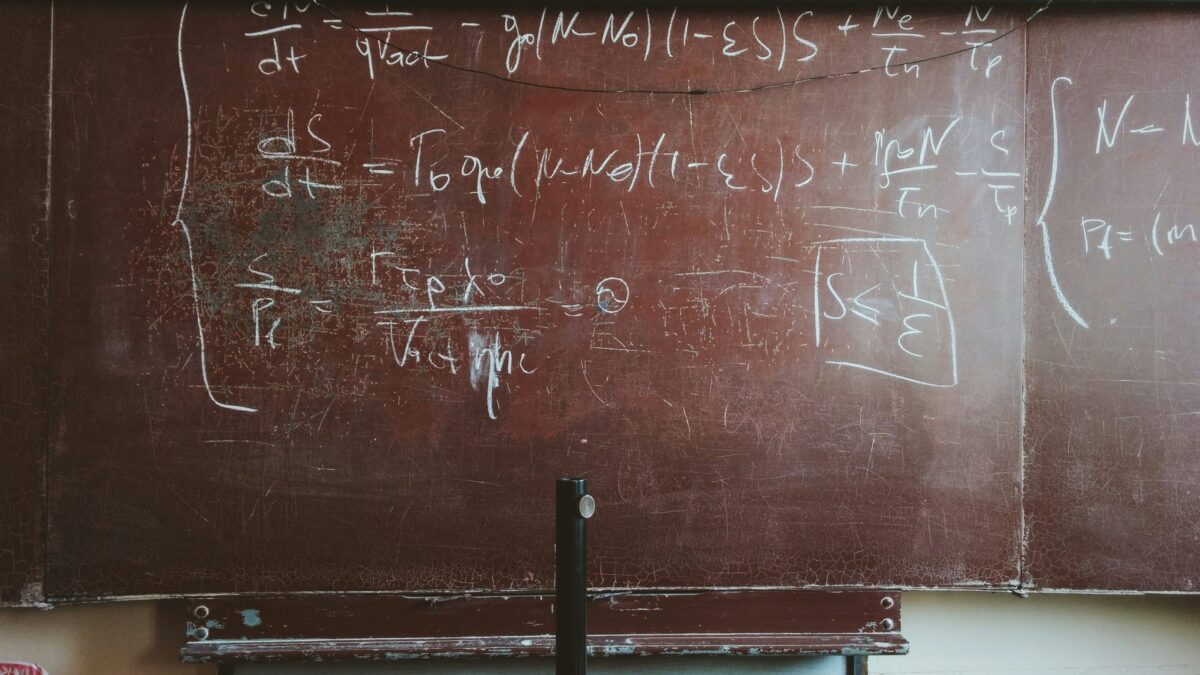 dN/dt = I/qVact - g₀(N-N₀)(1-εS)S + Ne/τn - N/τp
dS/dt = Γ₀g₀(N-N₀)(1-εS)S + N/τn - S/τp
S/Pf = Γτpλ₀/Vactηhc = ϑ
S ≤ 1/ε
N -
Pf = (m